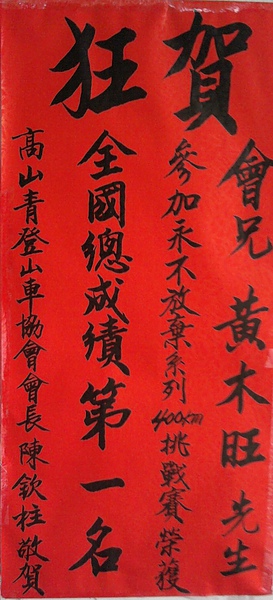 狂賀
會兄黃木旺先生
參加永不放棄系列400KM挑戰賽榮獲
全國總成績第一名
高山青登山車協會會長陳欽柱敬賀